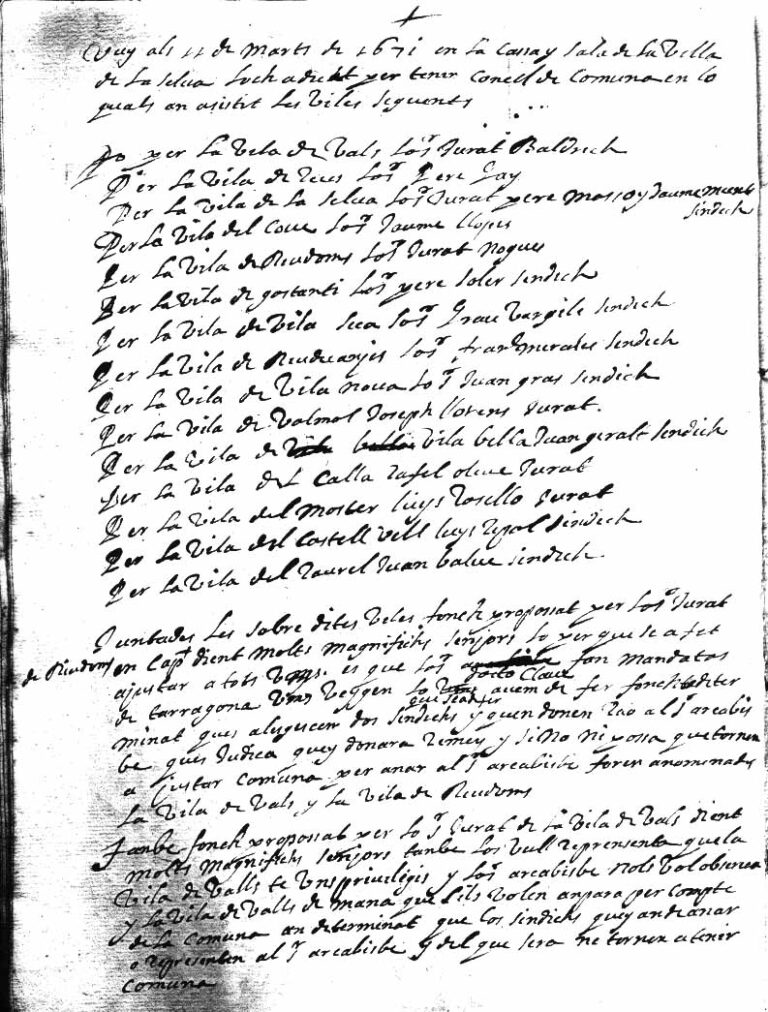 Vuy als 11 de Marts de 1671 en la Cassa y Sala de la Vella
de la Selva loch adictt per tenir Concell de Comuna en lo
quals an asistit les viles seguents
po per la Vila de Vals lo sr Jurat Baldrich
Per la Vila de Reus lo sr Pere Gay
Per la Vila de la Selva lo sr Jurat pere Masso y Jaume
sindich
Per la Vila del Cove lo sr Jaume llopis
Per la Vila de Riudoms lo sr Jurat Nogues
Per la Vila de gostanti lo sr pere soler sindich
Per la Vila de Vila seca lo sr Grau Vargile sindich
Per la Vila de Riudecanjes lo sr franch Murales sindich
Per la Vila de Vila nova lo sr Juan gras sindich
Per la Vila de Valmol Joseph llorens Jurat.
Per la Vila de Vila bella Vila bella Juan geralt sindich
Per la Vila del Calla Rafel olive Jurat
Per la Vila del Moster lluys Rosello Jurat
Per la Vila del Castell vell lluys sindich
Per la Vila del Raurel Juan balue sindich
Juntades les sobre dites Veles fonch propossat per lo sr Jurat
de Riudoms
en Cap dient Molts Magnifichs senjors lo per que se a fet
ajustar a tots Vms. es que los fan Mandatos
porto Clave
de tarragona Vms Veggen lo avem de fer fonch deter
que
minat ques aleguscen dos sindichs y quen donen Rao al sr arcabis
be ques Judica quey donara Remey y si No ni possa que tornen
a Justar Comuna per anar al sr arcabisbe foren anomenades
la Vila de Vals y la Vila de Riudoms
Tanbe fonch propossat per lo sr Jurat de la Vila de Vals dient
Molts Magnifichs senjors tanbe los Vull reprensenta que la
Vila de Valls te Uns privilegis y lo sr arcabisbe Nols Vol observa
y la Vila de Valls de mana que lils Volen anpara per Compte
de la Comuna an determinat que los sindichs quey an de anar
o representen al sr arcabisbe y del que sera ne tornen a tenir
Comuna